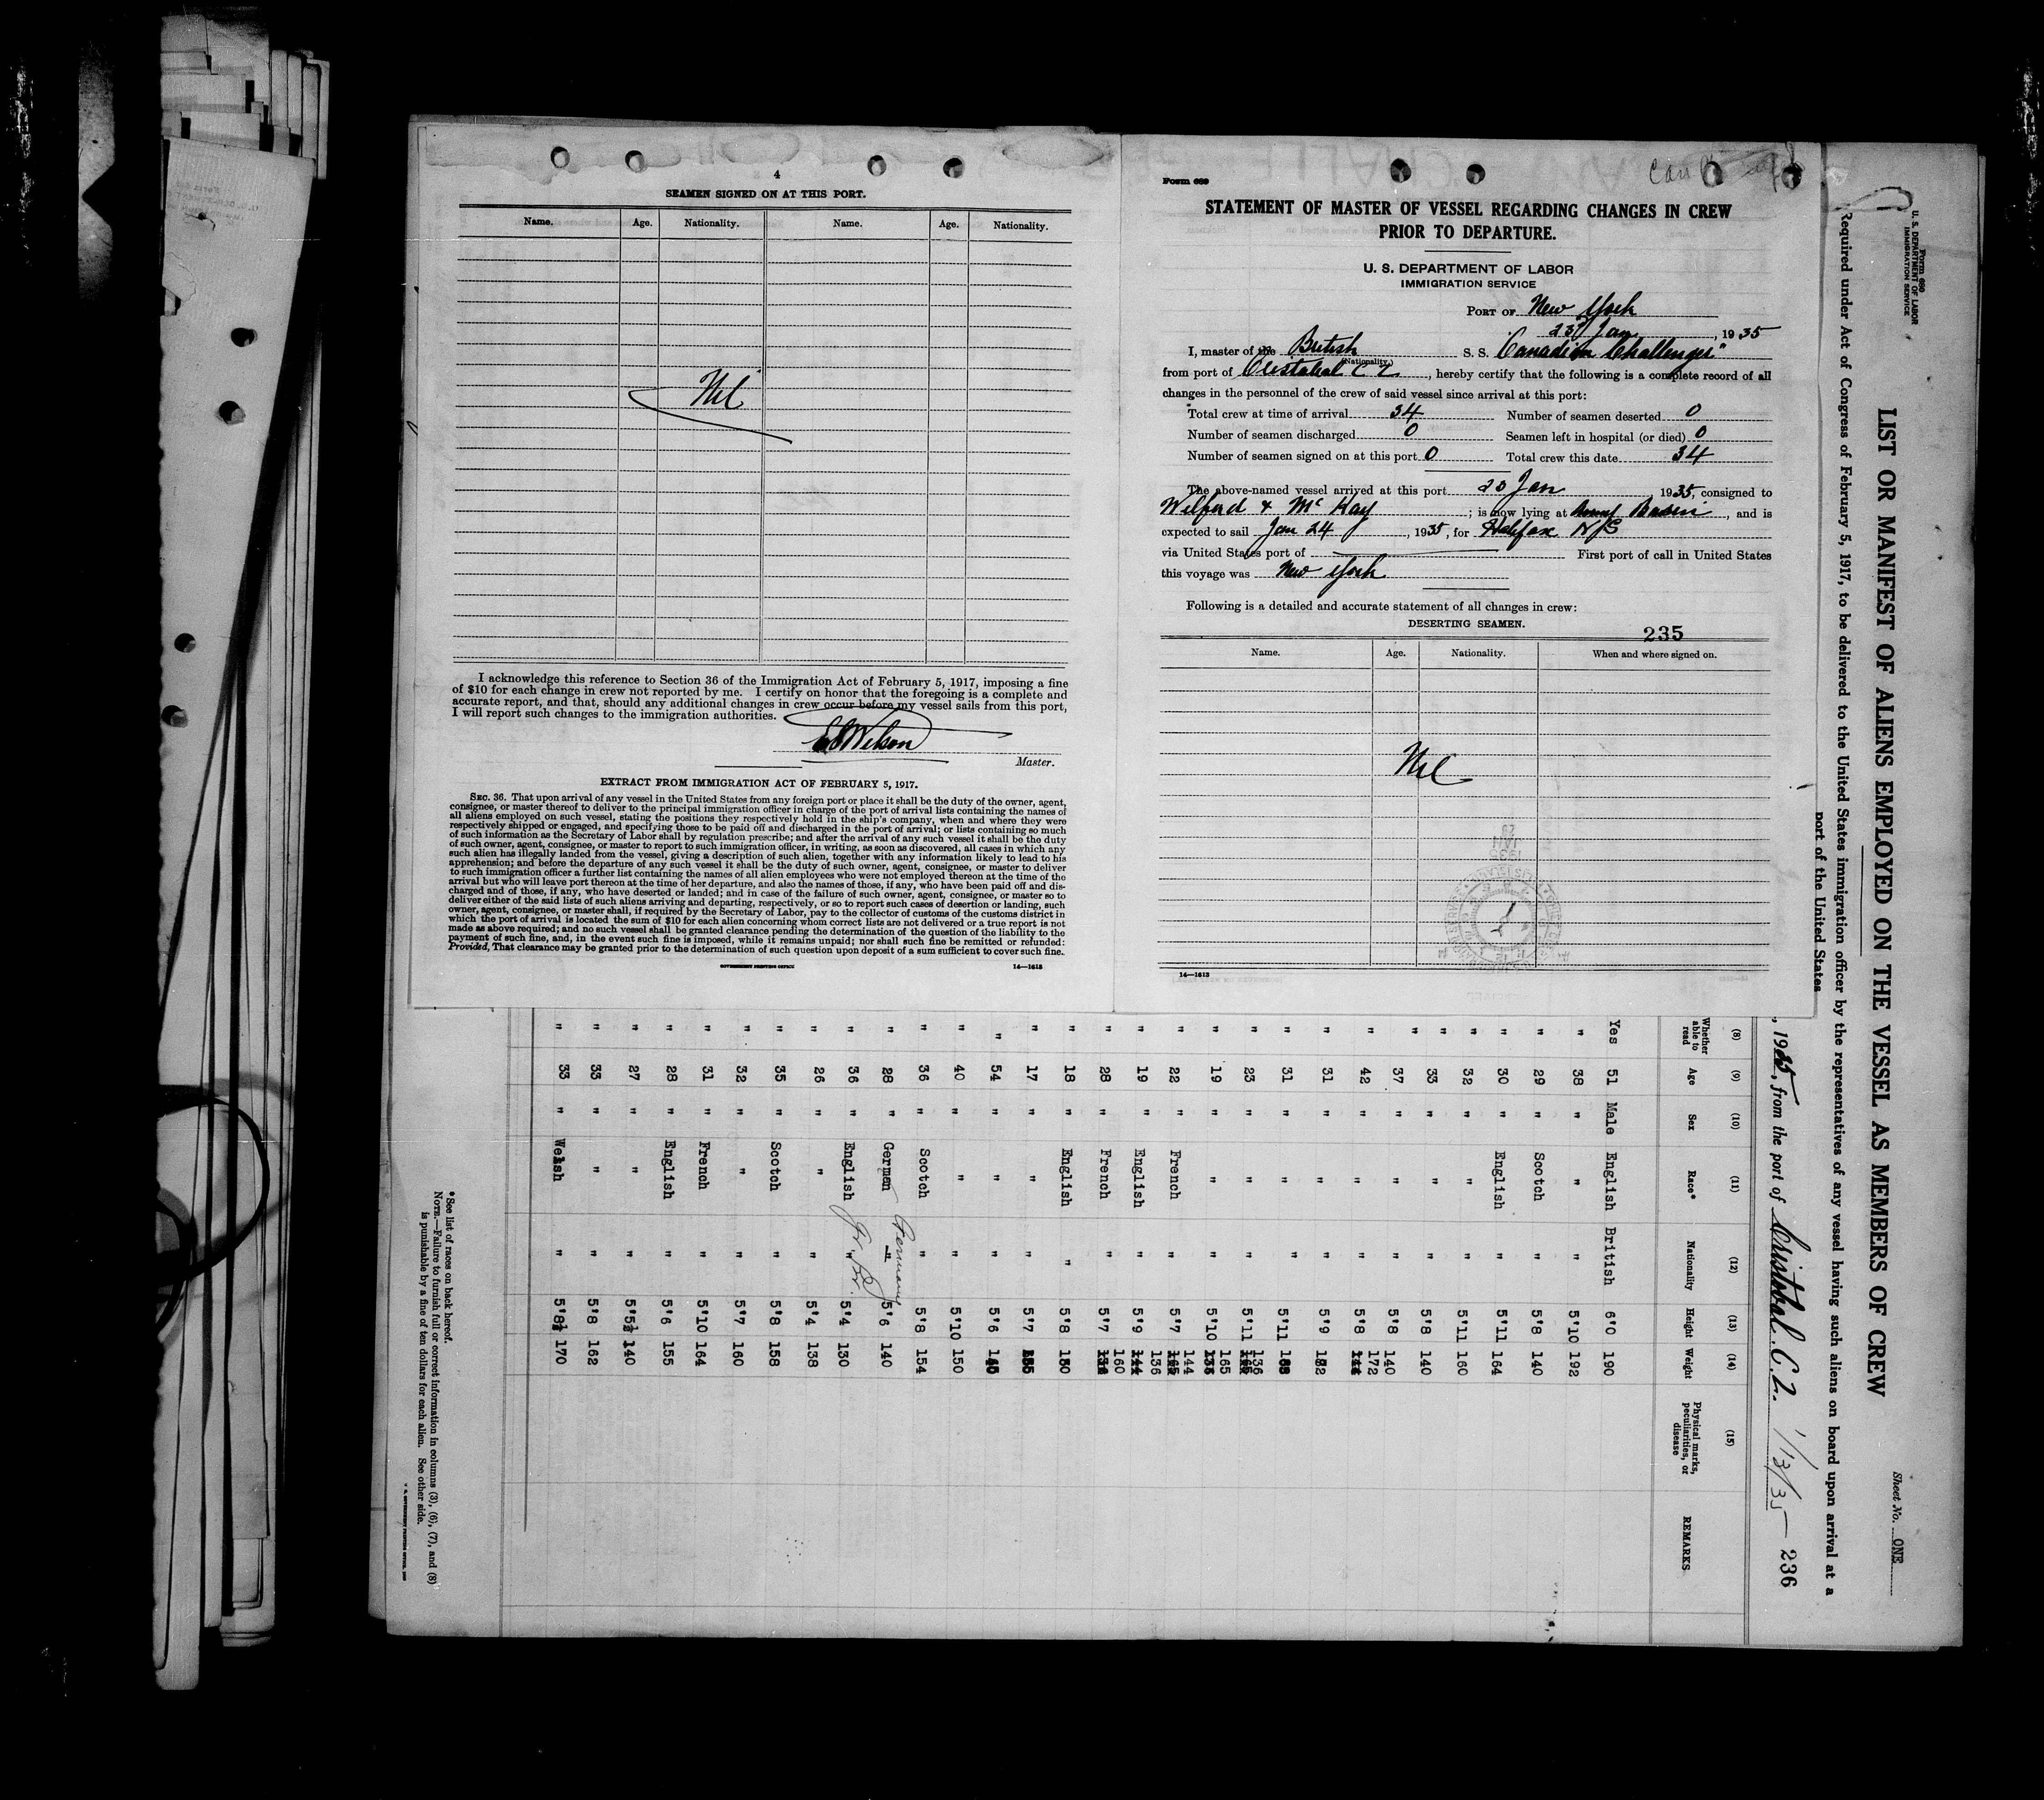 4
SEAMEN SIGNED ON AT THIS PORT.
Name. Age. Nationality. Name. Age. Nationality.
Nil
I acknowledge this reference to Section 36 of the Immigration Act of February 5, 1917, imposing a fine
of $10 for each change in crew not reported by me. I certify on honor that the foregoing is a complete and
accurate report, and that, should any additional changes in crew occur before my vessel sails from this port,
I will report such changes to the immigration authorities.
Wilson
Master.
EXTRACT FROM IMMIGRATION ACT OF FEBRUARY 5, 1917.
SEC. 36. That upon arrival of any vessel in the United States from any foreign port or place it shall be the duty of the owner, agent,
consignee, or master thereof to deliver to the principal immigration officer in charge of the port of arrival lists containing the names of
all aliens employed on such vessel, stating the positions they respectively hold in the ship's company, when and where they were
respectively shipped or engaged, and specifying those to be paid off and discharged in the port of arrival; or lists containing so much
of such information as the Secretary of Labor shall by regulation prescribe; and after the arrival of any such vessel it shall be the duty
of such owner, agent, consignee, or master to report to such immigration officer, in writing, as soon as discovered, all cases in which any
such alien has illegally landed from the vessel, giving a description of such alien, together with any information likely to lead to his
apprehension; and before the departure of any such vessel it shall be the duty of such owner, agent, consignee, or master to deliver
to such immigration officer a further list containing the names of all alien employees who were not employed thereon at the time of the
arrival but who will leave port thereon at the time of her departure, and also the names of those, if any, who have been paid off and dis-
charged and of those, if any, who have deserted or landed; and in case of the failure of such owner, agent, consignee, or master so to
deliver either of the said lists of such aliens arriving and departing, respectively, or so to report such cases of desertion or landing, such
owner, agent, consignee, or master shall, if required by the Secretary of Labor, pay to the collector of customs of the customs district in
which the port of arrival is located the sum of $10 for each alien concerning whom correct lists are not delivered or a true report is not
made as above required; and no such vessel shall be granted clearance pending the determination of the question of the liability to the
payment of such fine, and, in the event such fine is imposed, while it remains unpaid; nor shall such fine be remitted or refunded:
Provided, That clearance may be granted prior to the determination of such question upon deposit of a sum sufficient to cover such fine.
GOVERNMENT PRINTING OFFICE 14—1613
Form 689
STATEMENT OF MASTER OF VESSEL REGARDING CHANGES IN CREW
PRIOR TO DEPARTURE.
U. S. DEPARTMENT OF LABOR
IMMIGRATION SERVICE
PORT OF New York
23rd Jan, 1935
I, master of the British S. S. Canadian Challenger"
(Nationality.)
from port of Cristobal C Z, hereby certify that the following is a complete record of all
changes in the personnel of the crew of said vessel since arrival at this port:
Total crew at time of arrival 34 Number of seamen deserted 0
Number of seamen discharged 0 Seamen left in hospital (or died) 0
Number of seamen signed on at this port 0 Total crew this date 34
The above-named vessel arrived at this port 20 Jan 1935, consigned to
Wilford & McKay; is now lying at Basin, and is
expected to sail Jan 24, 1935, for Halifax N/S
via United States port of First port of call in United States
this voyage was New York
Following is a detailed and accurate statement of all changes in crew:
DESERTING SEAMEN.
235
Name. Age. Nationality. When and where signed on.
Nil
14—1613
Form 680
U. S. DEPARTMENT OF LABOR
IMMIGRATION SERVICE
Sheet No. ONE
LIST OR MANIFEST OF ALIENS EMPLOYED ON THE VESSEL AS MEMBERS OF CREW
Required under Act of Congress of February 5, 1917, to be delivered to the United States immigration officer by the representatives of any vessel having such aliens on board upon arrival at a
port of the United States
, 1935, from the port of Cristobal C.Z. 1/13/35 236
(8) (9) (10) (11) (12) (13) (14) (15)
Whether able to read Age Sex Race* Nationality Height Weight Physical marks, peculiarities, or disease REMARKS
Yes 51 Male English British 6'0 190
" 38 " " " 5'10 192
" 29 " Scotch " 5'8 140
" 30 " English " 5'11 164
" 32 " " " 5'11 160
" 33 " " " 5'8 140
" 37 " " " 5'8 140
" 42 " " " 5'8 172
" 31 " " " 5'9
" 31 " " " 5'11
" 23 " " " 5'11 136
" 19 " " " 5'10 165
" 22 " French " 5'7 144
" 19 " English " 5'9 136
" 28 " French " 5'7 160
" 18 " English " 5'8
" 17 " " " 5'7
" 54 " " " 5'6
" 40 " " " 5'10 150
" 36 " Scotch " 5'8 154
" 28 " German " Germany 5'6 140
" 36 " English " 5'4 130
" 26 " " " 5'4 138
" 35 " Scotch " 5'8 158
" 32 " " " 5'7 160
" 31 " French " 5'10 164
" 28 " English " 5'6 155
" 27 " " " 5'5½ 140
" 33 " " " 5'8 162
" 33 " Welsh " 5'8½ 170
*See list of races on back hereof.
NOTE.—Failure to furnish full or correct information in columns (3), (6), (7), and (8)
is punishable by a fine of ten dollars for each alien. See other side.